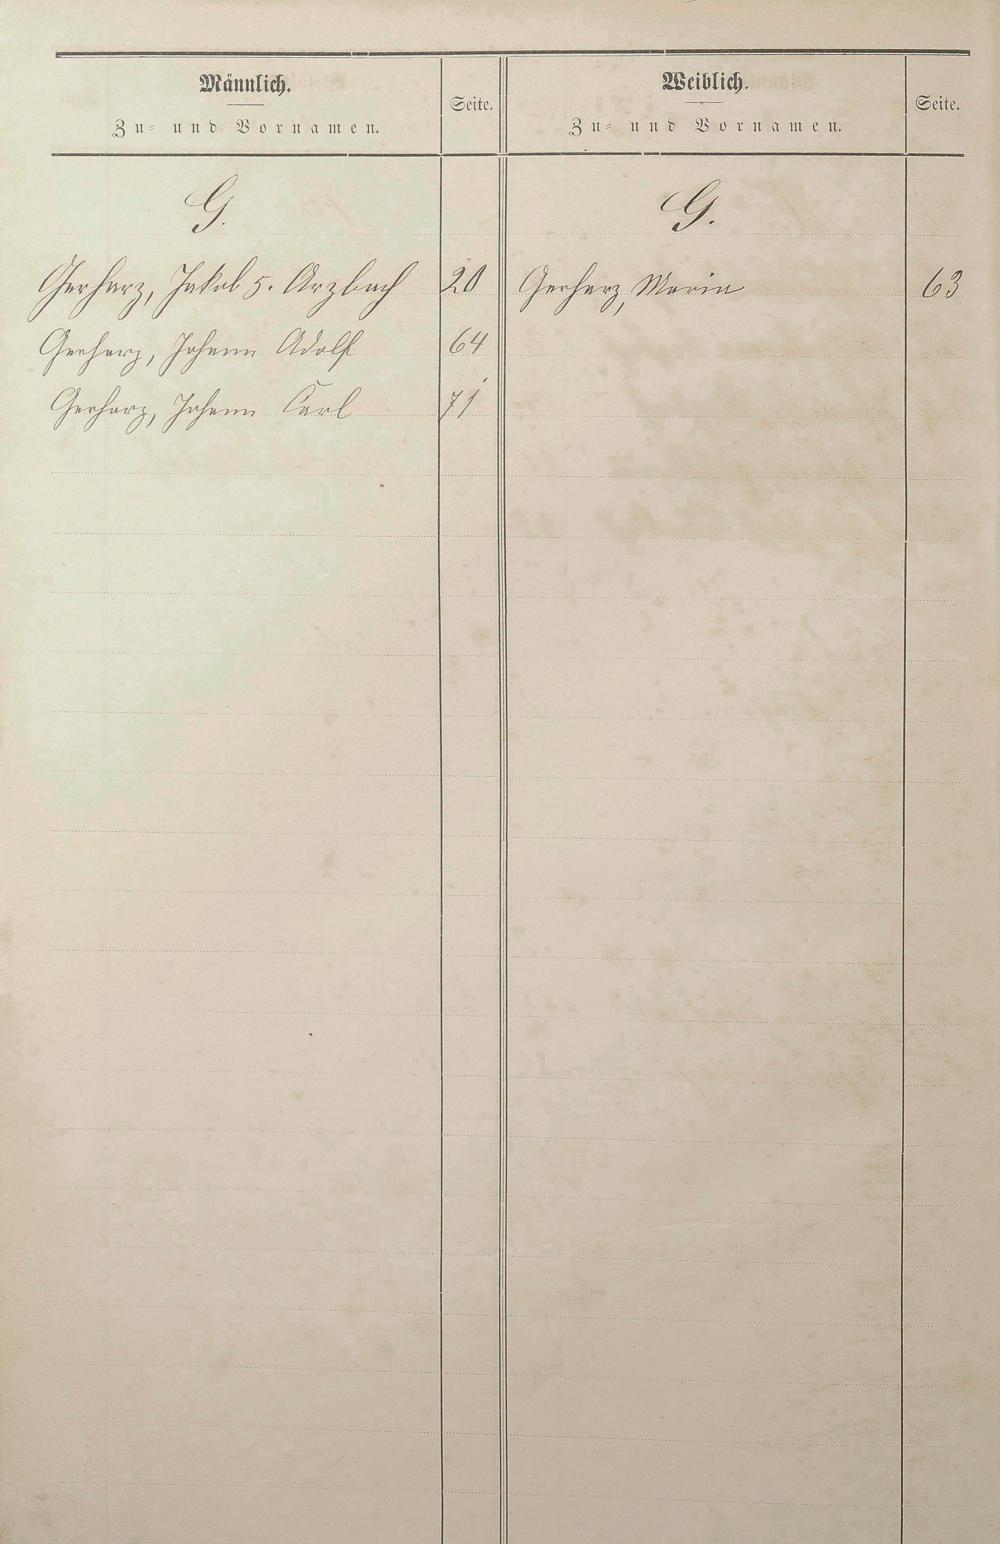 Männlich.
Zu- und Vornamen.
Seite.
Weiblich.
Zu- und Vornamen.
Seite.
G.
G.
Gerharz, Jakob 5. Arzbach 20
Gerharz, Maria 63
Gerharz, Johann Adolf 64
Gerharz, Johann Carl 71